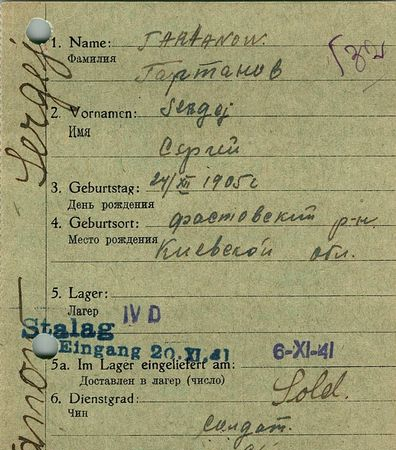 1. Name:
Фамилия
Гартанов
2. Vornamen: Sergej
Имя
Сергей
3. Geburtstag: 24/XII 1905 г
День рождения
4. Geburtsort: Фастовский р-н.
Место рождения Киевской обл.
5. Lager:
Лагер IV D
Stalag
Eingang 20.XI.41 6-XI-41
5a. Im Lager eingeliefert am:
Доставлен в лагер (число)
6. Dienstgrad: Sold.
Чин солдат.
Sergej